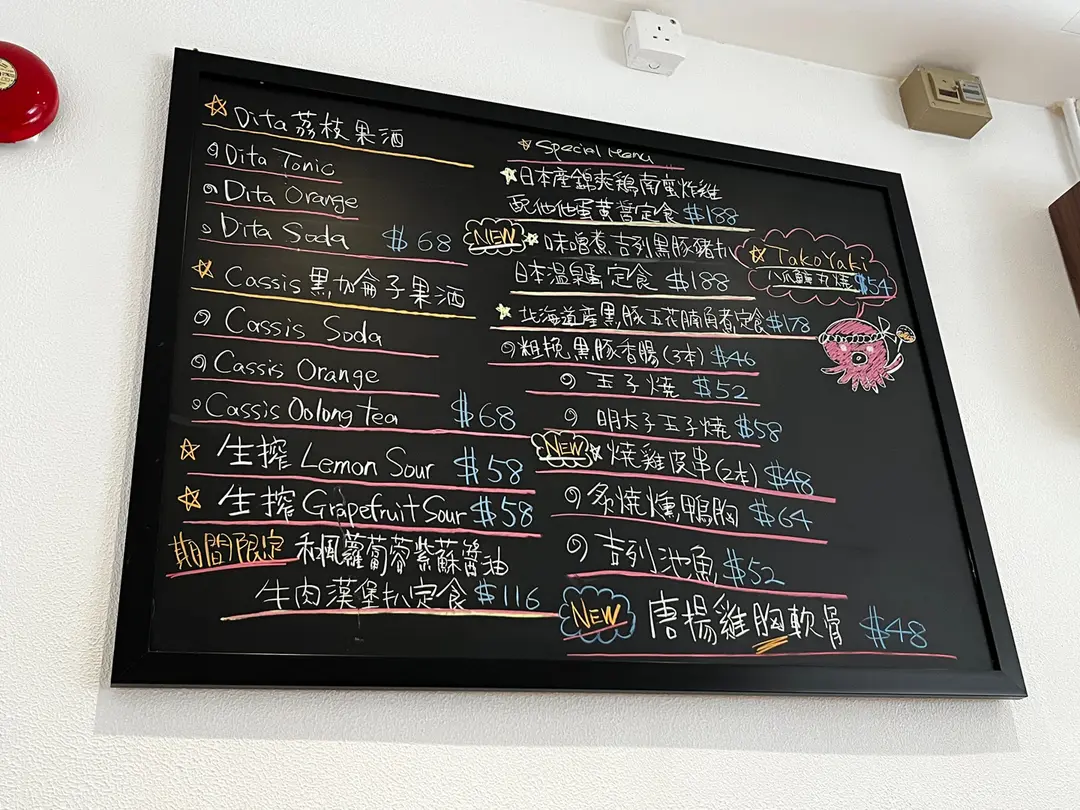 Dita荔枝果酒
Dita Tonic
Dita Orange
Dita Soda $68
Cassis黑加侖子果酒
Cassis Soda
Cassis Orange
Cassis Oolong tea $68
生搾 Lemon Sour $58
生搾 Grapefruit Sour $58
期間限定 和風蘿蔔蓉紫蘇醬油
牛肉漢堡扒定食 $116
Special Menu
日本產錦爽鶏南蛮炸雞
配他他蛋黃醬定食 $188
NEW 味噌煮吉列黑豚豬扒
日本温泉蛋定食 $188
北海道産黒豚五花腩角煮定食 $178
粗挽黑豚香腸(3本) $46
玉子燒 $52
明太子玉子燒 $58
NEW 燒雞皮串(2本) $48
炙燒燻鴨胸 $64
吉列池魚 $52
NEW 唐揚雞胸軟骨 $48
TakoYaki
八爪魚丸燒 $54